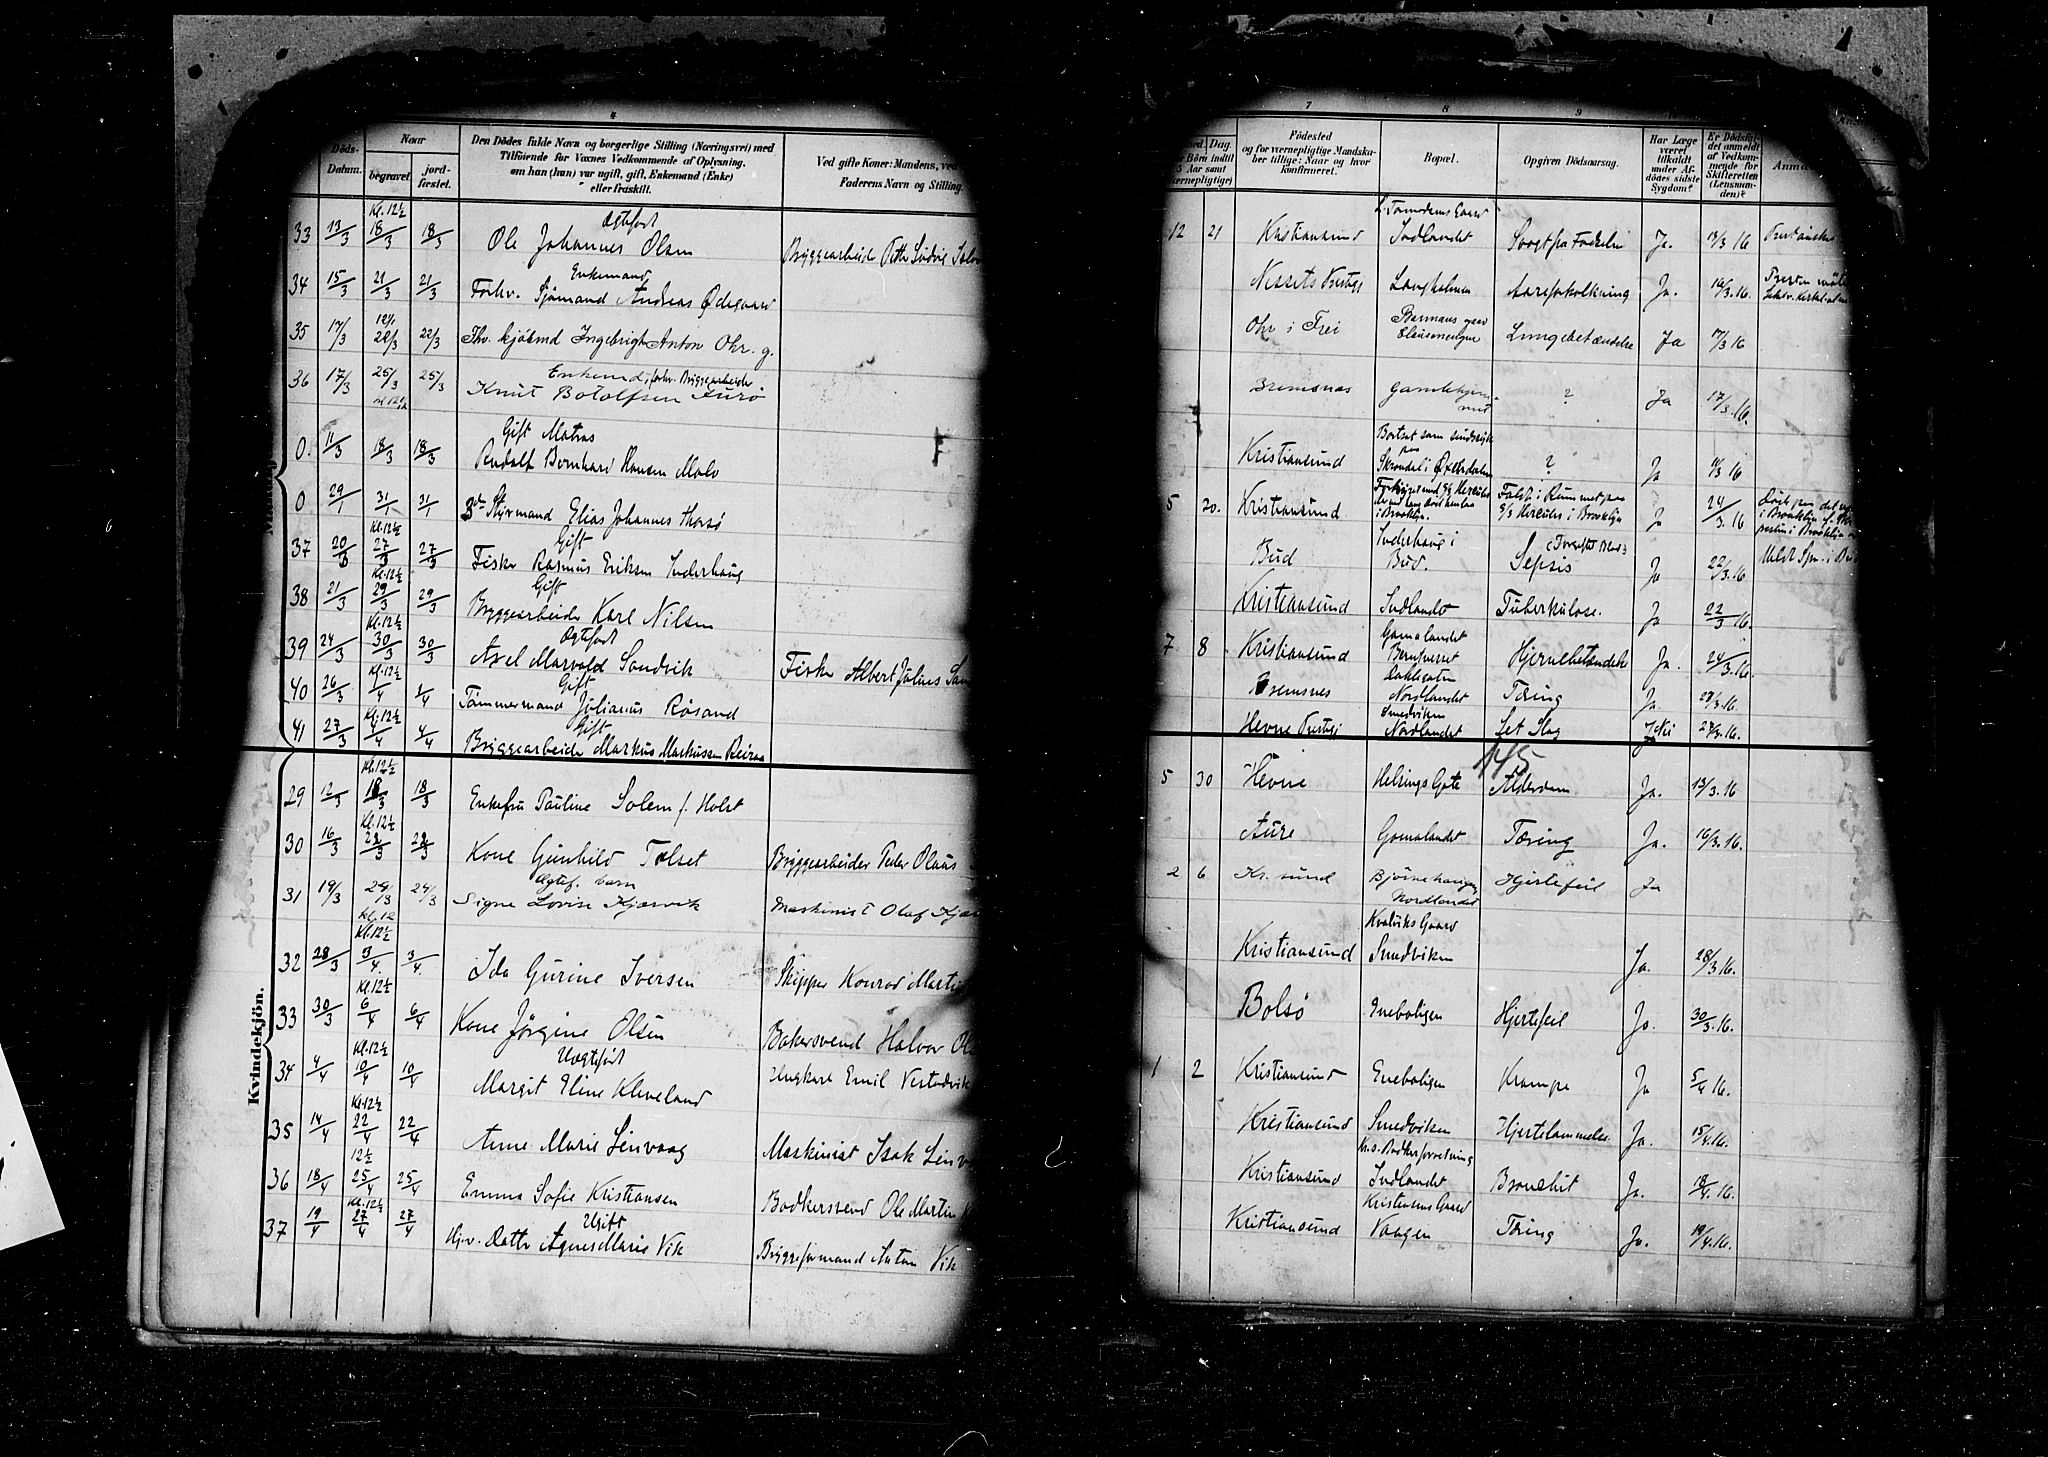 4
Döds-
Datum.
Naar
begravet.
jord-
fæstet.
Den Dödes fulde Navn og borgerlige Stilling (Næringsvei) med
Tilföiende for Voxnes Vedkommende af Oplysning,
om han (hun) var ugift, gift, Enkemand (Enke)
eller fraskilt.
Ved gifte Koner: Mandens, ved
Faderens Navn og Stilling.
33 13/3 Kl. 12½ 18/3 18/3 Ægtefødt
Ole Johannes Olsen
Bryggearbeider Peder Ludvig
34 15/3 21/3 21/3 Enkemand
Forhv. Sjømand Andreas Ødegaard
35 17/3 22/3 22/3 Ingebrigt Anton Ohr. g.
36 17/3 25/3 25/3 Enkemd, forhv. Bryggearbeider
Knut Botolfsen Furø
0. 11/3 18/3 18/3 Gift Matros
Rudolf Bernhard Hansen Malo
0 29/1 31/1 31/1 Styrmand Elias Johannes Thorsø
37 20/3 Kl. 12½ 27/3 27/3 Gift
Fisker Rasmus Eriksen Inderhaug
38 21/3 Kl. 12½ 29/3 29/3 Gift
Bryggearbeider Karl Nilsen
39 24/3 Kl. 12½ 30/3 30/3 Ægtefødt
Axel Marvold Sandvik
Fisker Albert Julius San
40 26/3 Kl. 12½ 1/4 1/4 Gift
Tømmermand Julianus Røsand
41 27/3 Kl. 12½ 4/4 4/4 Gift
Bryggearbeider Markus Markussen
Kvindekjön.
29 12/3 Kl. 12½ 18/3 18/3 Enkefru Pauline Solem f. Holst
30 16/3 Kl. 12½ 22/3 22/3 Kone Gunhild Tolset
Bryggearbeider Peder Olaus
31 19/3 24/3 24/3 Ægtef. barn
Signe Lovise Kjørsvik
Maskinist Olaf Kjør
kl. 12
32 28/3 Kl. 12½ 3/4 3/4 Ida Gurine Iversen
Skipper Konrad Martin
33 30/3 Kl. 12½ 6/4 6/4 Kone Jørgine Olsen
Bakersvend Halvor Ols
34 4/4 Kl. 12½ 10/4 10/4 Uægtefødt
Margit Eline Kleveland
Ungkarl Emil
35 14/4 Kl. 12½ 22/4 22/4 Anne Marie Leirvaag
Maskinist Isak Leirv
36 18/4 12½ 25/4 25/4 Emma Sofie Kristiansen
Bødkersvend Ole Martin K
37 19/4 Kl. 12½ 27/4 27/4 Ugift
Hjv. Datter Agnes Marie Vik
Bryggeformand Anton Vik
7
8
9
Dag.
Börn indtil
5 Aar samt
værnepligtige)
Födested
og for værnepligtige Mandska-
ber tillige: Naar og hvor
konfirmeret.
Bopæl.
Opgiven Dödsaarsag.
Har Læge
været
tilkaldt
under Af-
dödes sidste
Sygdom?
Er Dödsfal-
det anmeldt
af Vedkom-
mende for
Skifteretten
(Lensman-
den)?
Anmæ
12 21 Kristiansund Indlandet Svagt fra Fødselen Ja. 13/3 16
Nessets Prestegj Langholmen Aareforkalkning Ja. 16/3.16.
Ohr i Frei Lungebetændelse Ja 17/3 16
Bremsnes ? Ja 17/3.16.
Kristiansund Bortsat som sindssyk
paa
Skrondal i Øxendalen ? Ja 16
5 20. Kristiansund i Brooklyn. Faldt i Rummet paa
S/S Hercules i Brooklyn Ja 24/3.16
Bud Inderhaug i
Bud. Sepsis Ja 22/3.16
Kristiansund Indlandet Tuberkulose. Ja 22/3 16.
7 8 Kristiansund Gomalandet Hjernebetændelse Ja. 24/3.16.
Bremsnes Nordlandet Tæring Ja. 27/3.16.
Hevne Prestegj Smedviken
Nordlandet Let Slag Nei 27/3.16.
145
5 30 Hevne Helsings Gate Alderdom Ja. 13/3.16
Aure Gomalandet Tæring Ja. 16/3.16.
2 6 Kr.sund Bjørnehaugen
Nordlandet Hjertefeil Ja
Kristiansund Kvalviks Gaard
Smedviken Ja. 28/3 16.
Bolsø Eneboligen Hjertefeil Ja. 30/3.16.
1 2 Kristiansund Eneboligen Krampe Ja 5/4 16.
Kristiansund Smedviken Hjertelammelse Ja. 15/4.16.
Kristiansund Indlandet Bronchit Ja. 18/4.16.
Kristiansund Kristensens Gaard
Vaagen Tæring Ja. 19/4.16.